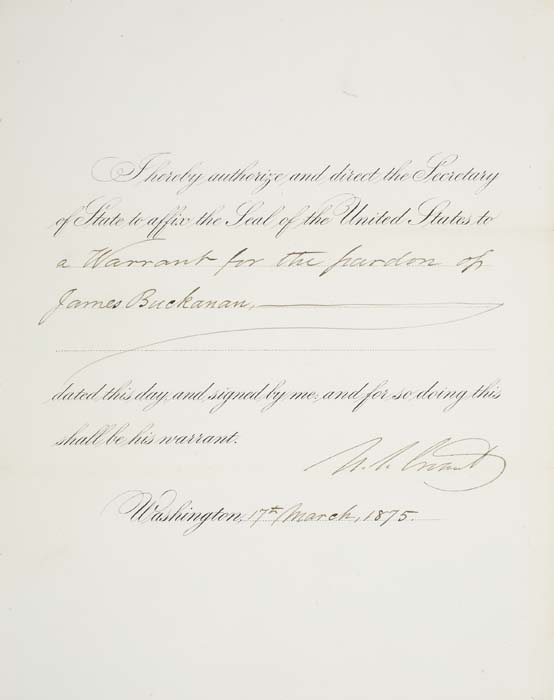 I hereby authorize and direct the Secretary
of State to affix the Seal of the United States to
a Warrant for the pardon of
James Buckanan,
dated this day, and signed by me; and for so doing this
shall be his warrant.
U. S. Grant
Washington, 17th March, 1875.